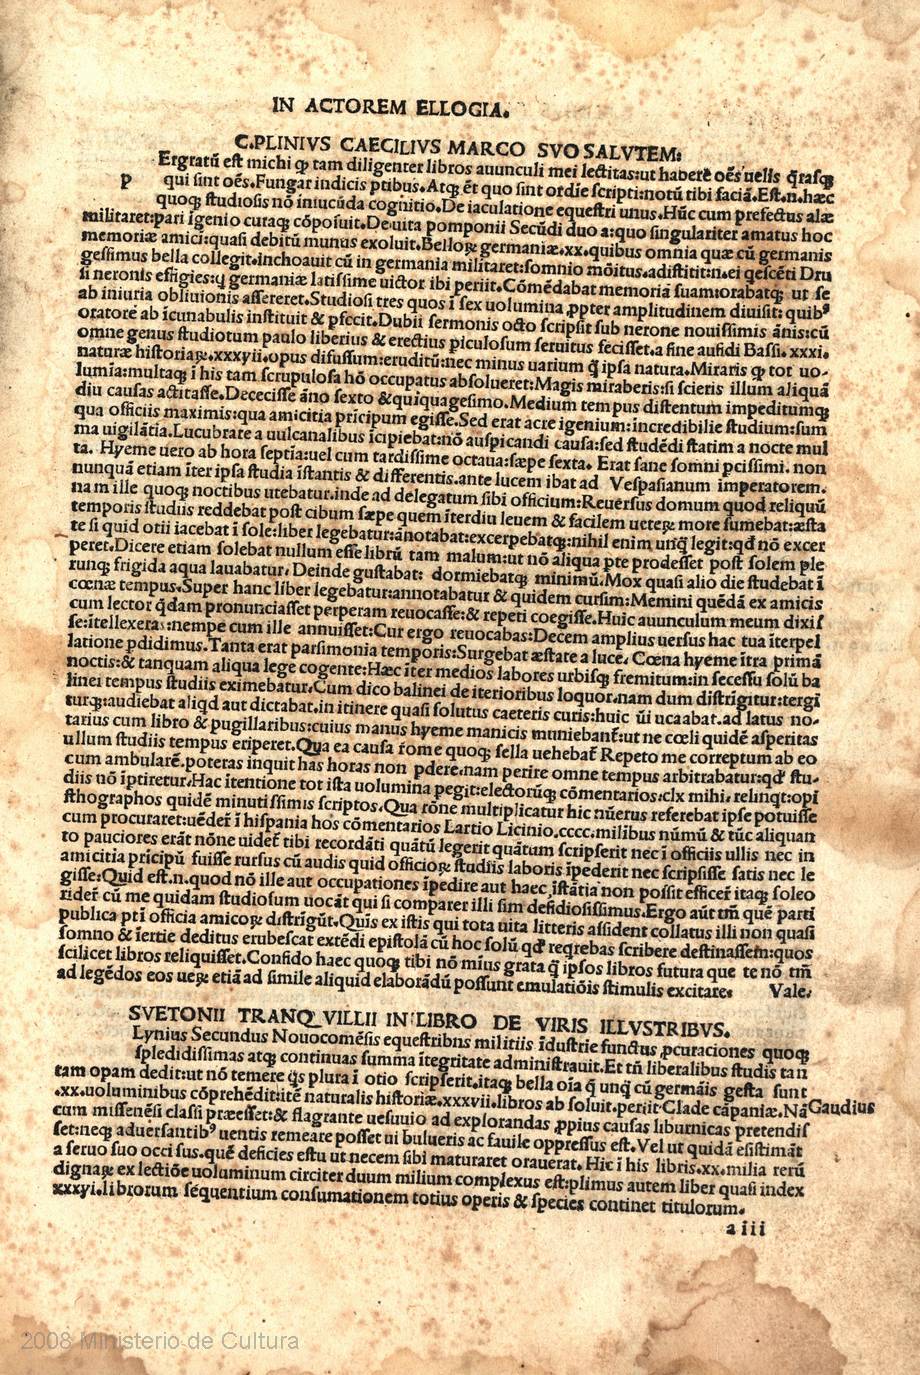 IN ACTOREM ELLOGIA.
C.PLINIVS CAECILIVS MARCO SVO SALVTEM:
Ergratũ est michi ꝙ tam diligenter libros auunculi mei lectitas:ut habere oẽs uelis q̃rasꝗ
p qui sint oẽs.Fungar indicis ptibus.Atqꝫ ẽt quo sint ordie scripti:notũ tibi faciã.Est.n.hæc
quoqꝫ studiosis nõ iniucũda cognitio.De iaculatione equestri unus.Hũc cum prefectus alæ
militaret:pari ĩgenio curaqꝫ cõposuit.De uita pomponii Secũdi duo a:quo singulariter amatus hoc
memoriæ amici:quasi debitũ munus exoluit.Belloꝝ germaniæ.xx.quibus omnia quæ cũ germanis
gessimus bella collegit.inchoauit cũ in germania militaret:somnio mõitus.adistitit:n.ei qescẽti Dru
si neronis effigies:ꝗ germaniæ latissime uictor ibi periit.Cõmẽdabat memoriã suam:orabatqꝫ ut se
ab iniuria obliuionis assereret.Studiosi tres quos ĩ sex uolumina ꝓpter amplitudinem diuisit: quibꝰ
oratorẽ ab ĩcunabulis instituit & ꝑfecit.Dubii sermonis octo scripsit sub nerone nouissimis ãnis:cũ
omne genus studiotum paulo liberius & erectius piculosum seruitus fecisset.a fine aufidi Bassi.xxxi.
naturæ historiaꝝ.xxxvii.opus diffusum:eruditũ:nec minus uarium q̃ ipsa natura.Miraris ꝙ tot uo-
lumia:multaqꝫ ĩ his tam scrupulosa hõ occupatus absolueret:Magis miraberis:si scieris illum aliquã
diu causas actitasse.Dececisse ãno sexto & quiquagesimo.Medium tempus distentum impeditumqꝫ
qua officiis maximis:qua amicitia prĩcipum egisse.Sed erat acre ĩgenium:incredibilie studium:sum
ma uigilãtia.Lucubrate a uulcanalibus ĩcipiebat:nõ auspicandi causa:sed studẽdi statim a nocte mul
ta. Hyeme uero ab hora septia:uel cum tardissime octaua:sæpe sexta. Erat sane somni pcissimi. non
nunquã etiam ĩter ipsa studia ĩstantis & differentis.ante lucem ibat ad Vespasianum imperatorem.
nam ille quoqꝫ noctibus utebatur.inde ad delegatum sibi officium:Reuersus domum quod reliquũ
temporis studiis reddebat post cibum sæpe quem ĩterdiu leuem & facilem ueteꝝ more sumebat:æsta
te si quid otii iacebat ĩ sole:liber legebatur:ãnotabat:excerpebatqꝫ:nihil enim unq̃ legit:qđ nõ excer
peret.Dicere etiam solebat nullum esse librũ tam malum:ut nõ aliqua pte prodesset post solem ple
runqꝫ frigida aqua lauabatur. Deinde gustabat: dormiebatqꝫ minimũ.Mox quasi alio die studebat ĩ
cœnæ tempus.Super hanc liber legebatur:annotabatur & quidem cursim:Memini quẽdã ex amicis
cum lector q̃dam pronunciasset perperam reuocasse:& repeti coegisse.Huic auunculum meum dixis
se:ĩtellexeras:nempe cum ille annuisset:Cur ergo reuocabas:Decem amplius uersus hac tua ĩterpel
latione pdidimus.Tanta erat parsimonia temporis:Surgebat æstate a luce. Cœna hyeme ĩtra primã
noctis:& tanquam aliqua lege cogente:Hæc ĩter medios labores urbisqꝫ fremitum:in secessu solũ ba
linei tempus studiis eximebatur.Cum dico balinei de iterioribus loquor.nam dum distrĩgitur:tergi
turqꝫ:audiebat aliqd aut dictabat.in itinere quasi solutus caeteris curis:huic ũi ucaabat.ad latus no-
tarius cum libro & pugillaribus:cuius manus hyeme manicis muniebant̃:ut ne cœli quidẽ asperitas
ullum studiis tempus eriperet.Qua ea causa rome quoqꝫ sella uehebat̃ Repeto me correptum ab eo
cum ambularẽ.poteras inquit has horas non pdere.nam perire omne tempus arbitrabatur:qđ stu-
diis nõ ĩptiretur.Hac ĩtentione tot ista uolumina pegit:electorũqꝫ cõmentarios.clx mihi. relinqt:opi
sthographos quidẽ minutissimis scriptos.Qua rõne multiplicatur hic nũerus referebat ipse potuisse
cum procuraret:uẽder̃ ĩ hispania hos cõmentarios Lartio Licinio.cccc.milibus nũmũ & tũc aliquan
to pauciores erãt nõne uidet̃ tibi recordãti quãtũ legerit quãtum scripserit nec ĩ officiis ullis nec in
amicitia prĩcipũ fuisse rursus cũ audis quid officioꝝ studiis laboris ĩpederit nec scripsisse satis nec le
gisse:Quid est.n.quod nõ ille aut occupationes ĩpedire aut haec ĩstãtia non possit efficer̃ itaqꝫ soleo
rider̃ cũ me quidam studiosum uocãt qui si comparer illi sim desidiosissimus.Ergo aũt tm̃ quẽ parti
publica pti officia amicoꝝ distrĩgũt.Quis ex istis qui tota uita litteris assident collatus illi non quasi
somno & ĩertie deditus erubescat extẽdi epistolã cũ hoc solũ qđ reqrebas scribere destinassem:quos
scilicet libros reliquisset.Confido haec quoqꝫ tibi nõ mĩus grata q̃ ipsos libros futura que te nõ tm̃
ad legẽdos eos ueꝝ etiã ad simile aliquid elaborãdũ possunt emulatiõis stimulis excitare. Vale.
SVETONII TRANQVILLII IN LIBRO DE VIRIS ILLVSTRIBVS.
Lynius Secundus Nouocomẽsis equestribns militiis ĩdustrie functus ꝓcuraciones quoqꝫ
spledidissimas atqꝫ continuas summa ĩtegritate administrauit.Et tñ liberalibus studis tan
tam opam dedit:ut nõ temere qs plura ĩ otio scripserit.itaqꝫ bella oĩa q̃ unq̃ cũ germãis gesta sunt
.xx.uoluminibus cõprehẽdit:itẽ naturalis historiæ.xxxvii.libros ab soluit.periit Clade cãpaniæ.Nã Gaudius
cum missenẽsi classi præesset:& flagrante uesuuio ad explorandas ꝓpius causas liburnicas pretendis
set:neqꝫ aduersantibꝰ uentis remeare posset ui bulueris ac fauile oppressus est.Vel ut quidã esistimãt
a seruo suo occi sus.quẽ deficies estu ut necem sibi maturaret orauerat. Hic ĩ his libris.xx.milia rerũ
dignaꝝ ex lectiõe uoluminum circiter duum milium complexus est:plimus autem liber quasi index
xxxyi.librorum sẽquentium consumationem totius operis & species continet titulorum.
a iii
2008 Ministerio de Cultura